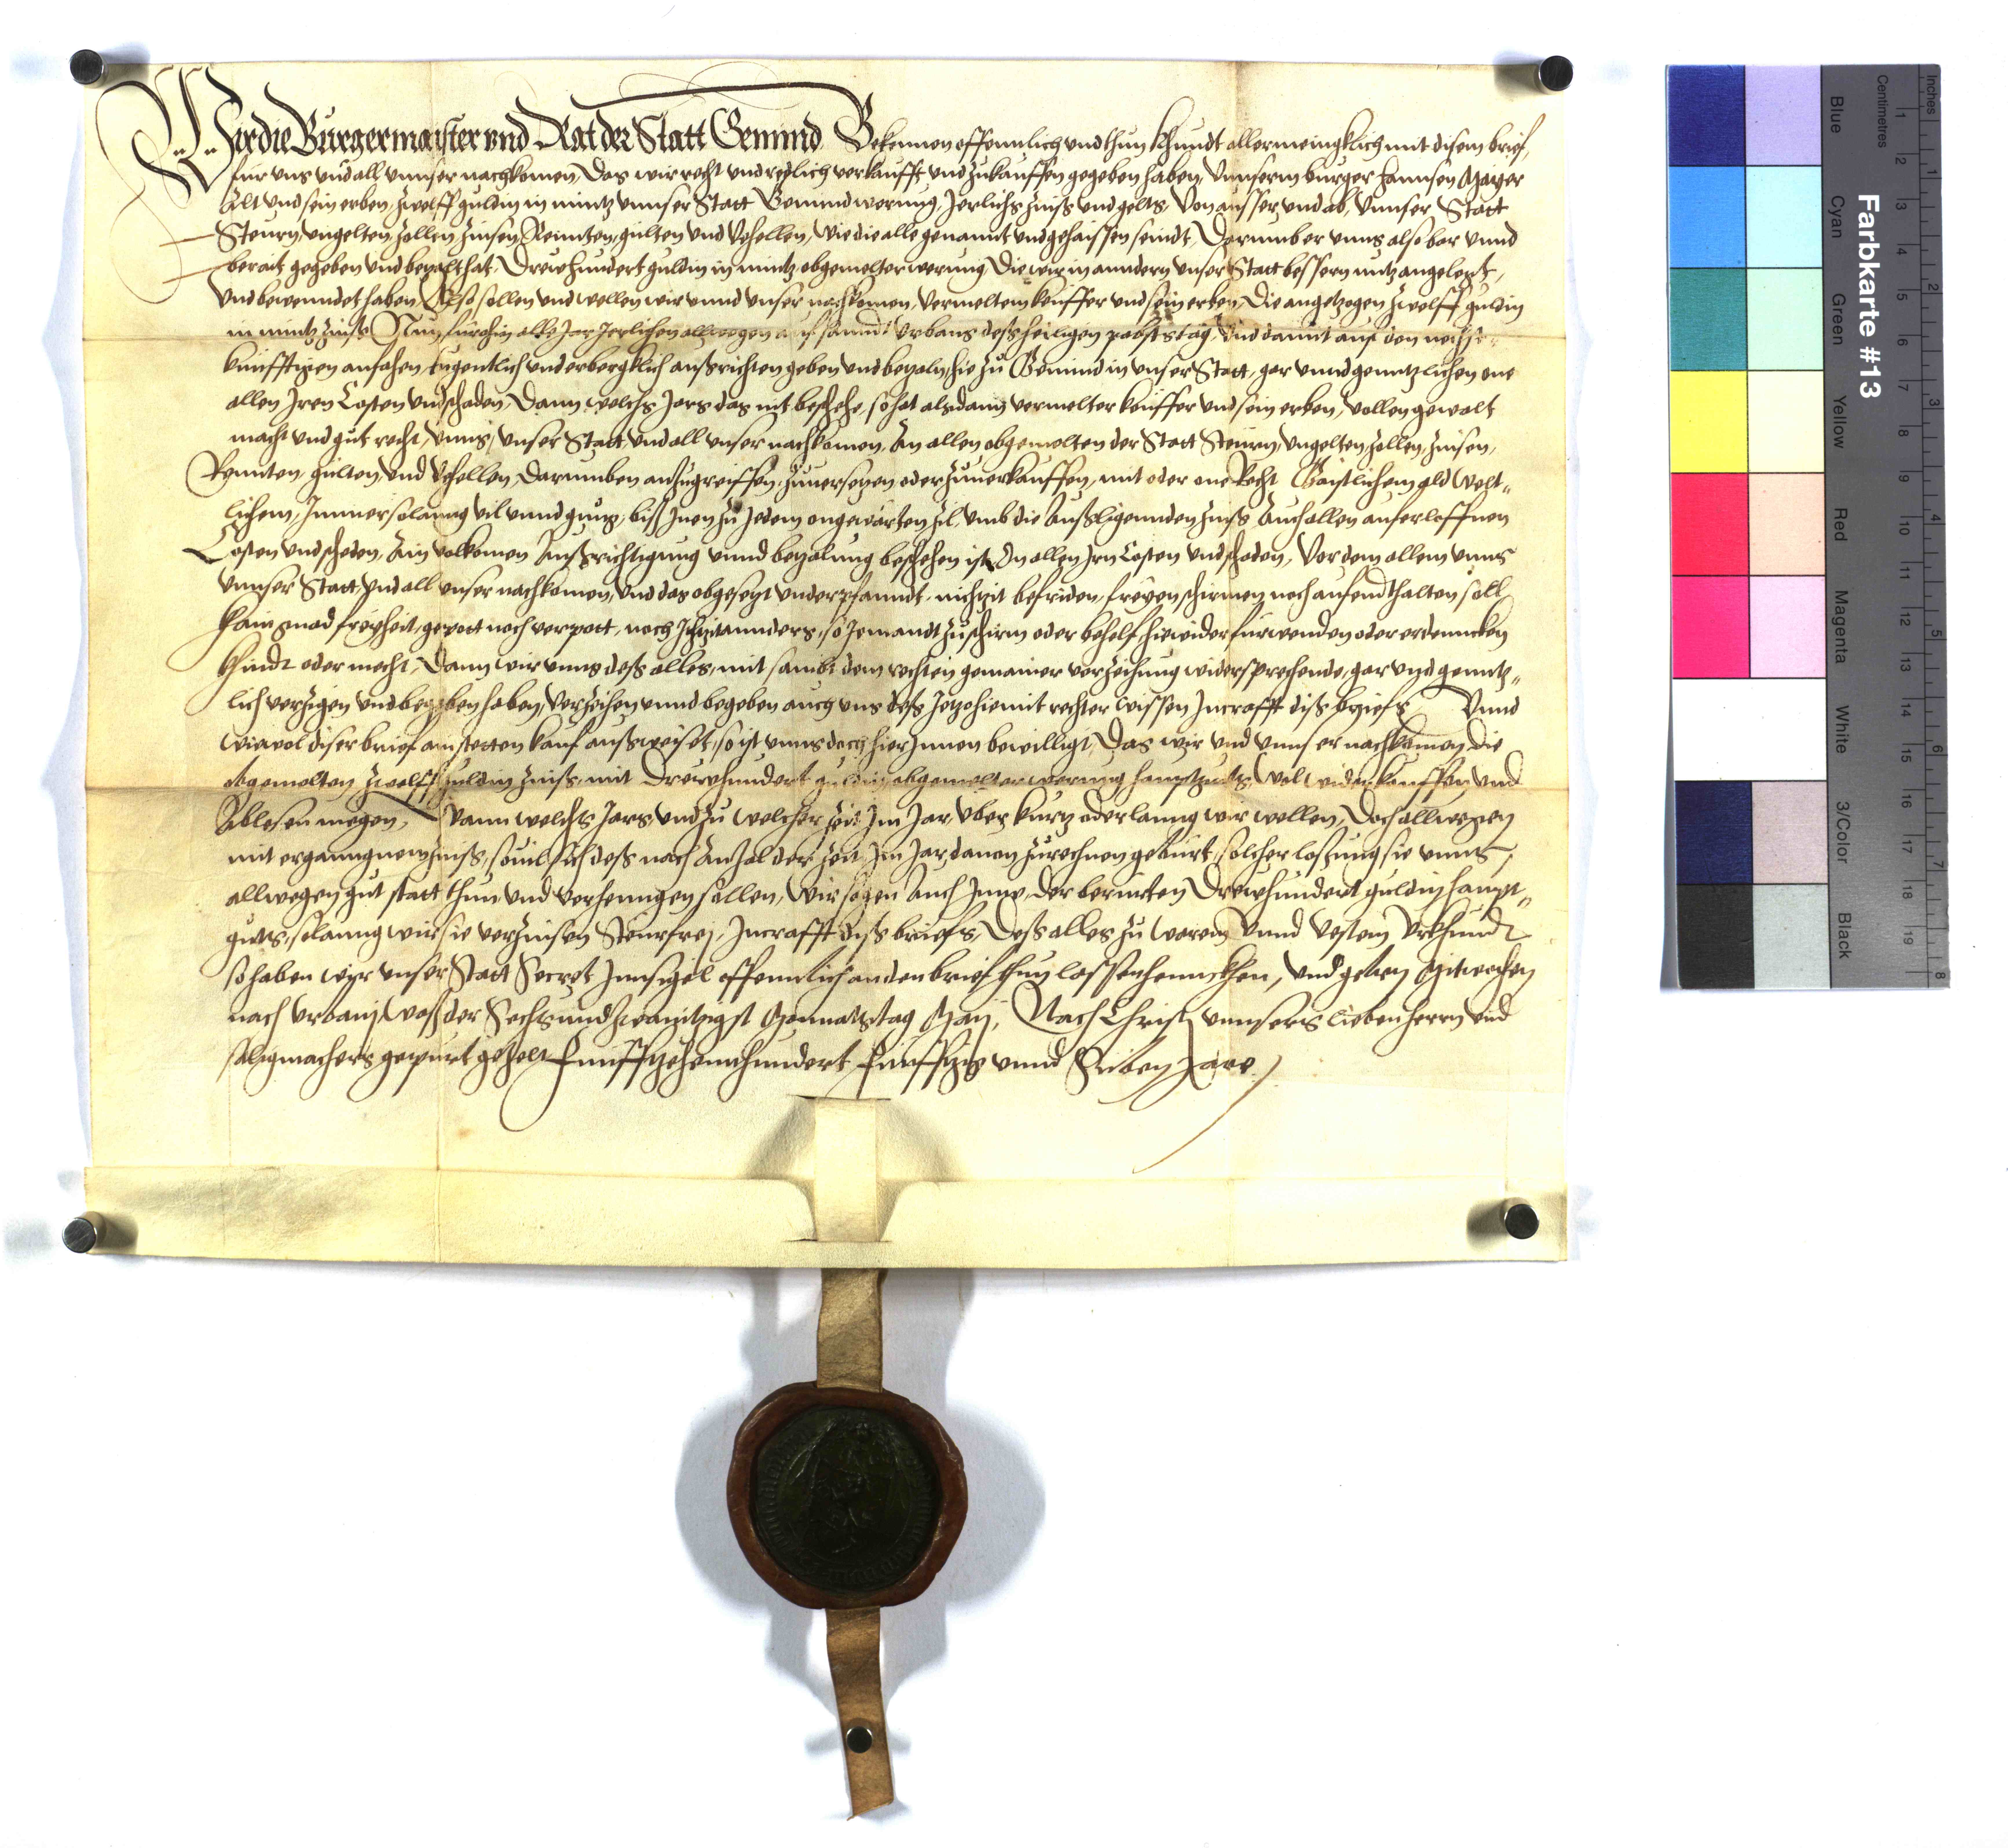 Wir die Burgermaister vnd Rat der Statt Gemind Bekennen offennlich vnd thun khundt allermeingklich mit disem brief,
für vns vnd all vnnser nachkomen, Das wir recht vnd redlich verkaufft vnd zukauffen gegeben haben, Vnnserm burger Hannsen Mayer
Alt vnd sein erben, zwelff guldin in mintz vnnser Statt Gemind werung, Jerlichs zinß vnd gelts, Von ausser vnd ab, vnnser Statt
Steurn, vngelten, zollen, zinsen, Rennten, gülten vnd Vehellen, wie die alle genannt vnd gehaissen seindt, Darumber vnns also bar vnnd
berait gegeben vnd bezalt hat, Drewhundert guldin in mintz obgemelter werung, Die wir in anndern vnser Statt bessern nutz angelegt,
Vnd bewenndet haben, Also sollen vnd wellen wir vnnd vnser nachkomen, vermeltem keuffer vnd sein erben, Die angetzogen zwelff guldin
in mintz zinß Nun fürohin alle Jar Jerlichen allwegen auf sannd Vrbans deß heiligen pabsts tag, Vnd damit auf den nechst
künfftigen anfahen, tugentlich vnderbergklich außrichten geben vnd bezaln, hie zu Gemind in vnser Statt, gar vnnd genntzlichen one
allen Jren Costen vnd schaden, Dann welchs Jars das nit beschehe, so hat alsdann vermelter keuffer vnd sein erben, vollen gewalt
macht vnd gut recht, vnns, vnser Statt vnd all vnser nachkomen, An allen obgemelten der Statt Steurn, vngelten, zollen, zinsen,
Rennten, gülten, vnd Vehellen, Darumben anzugreiffen, zuuersetzen oder zuuerkauffen, mit oder one Recht Gaistlichem ald Welt„
lichem, Jmmer solanng vil vnnd gnug, biß Jnen zu Jedem zil, vmb die Außligennden zinß Auch allen auferloffnen
Costen vnd scheden, Ain volkomen Außrichtigung vnnd bezalung beschehen ist, On allen Jrn Costen vnd schaden, Vor dem allem vnns
vnnser Statt, vnd all vnser nachkomen, vnd das obgesetzt vnderpfanndt, nichtzit befriden, freyen schirmen noch aufendthalten soll
kain gnad freyheit, gepott noch verpott, noch Jchtzit annders, so Jemandt zu schirm oder behelf hiewider fürwenden oder erdenncken
khindt oder mecht, Dann wir vnns deß alles, mit sambt dem rechten gemainer verzeihung widersprechende, gar vnd genntz„
lich verzigen vnd begeben haben, Verzeihen vnnd begeben auch vns deß Jetzo hiemit rechter wissen, Jncrafft diß briefs, Vnnd
wiewol diser brief ain stetten kauf außweiset, so ist vnns doch hierjnnen bewilligt, Das wir vnd vnnser nachkomen, die
obgemelten zwelff guldin zinß, mit Drewhundert guldin obgemelter werung haupt guts, wol widerkauffen vnd
Ablesen megen, Wann welchs Jars, vnd zu welcher zeit Jm Jar, vber kurtz oder lanng wir wellen, Doch allwegen
mit erganngnem zinß, souil sich deß nach Anzal der zeit Jm Jar, dauon zurechnen gebürt, solcher losung sie vnns,
allwegen gut statt thun, vnd verhenngen sollen, Wir sagen Auch Jnen, der berürten Drewhundert guldin haupt„
guts, solanng wir sie verzinsen Steurfrej, Jncrafft diß briefs, Deß alles zu warem vnnd vestem Vrkhundt
so haben wir vnser Statt Secret Jnnsigel offennlich an den brief thun lassen hennckhen, Vnd geben Mitwochen
nach Vrbanj, was der Sechs vnd zwaintzigst Monnats tag Maij, Nach Christj vnnsers lieben herrn vnd
saligmachers gepurt getzelt Funfftzehennhundert Funfftzig vnnd Siben Jare
Farbkarte #13
Centimetres
Inches
Blue
Cyan
Green
Yellow
Red
Magenta
White
3/Color
Black
1 2 3 4 5 6 7 8 9 10 11 12 13 14 15 16 17 18 19
1 2 3 4 5 6 7 8